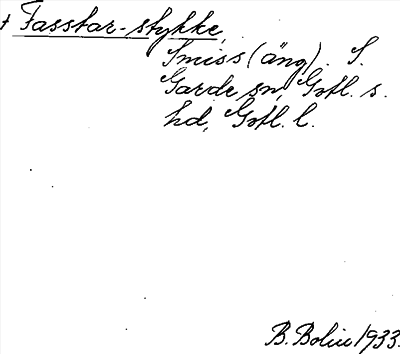 + Fasstar-stykke,
Smiss (äng). S.
Garde sn, Gotl. s.
hd, Gotl. l.
B. Bolin 1933.